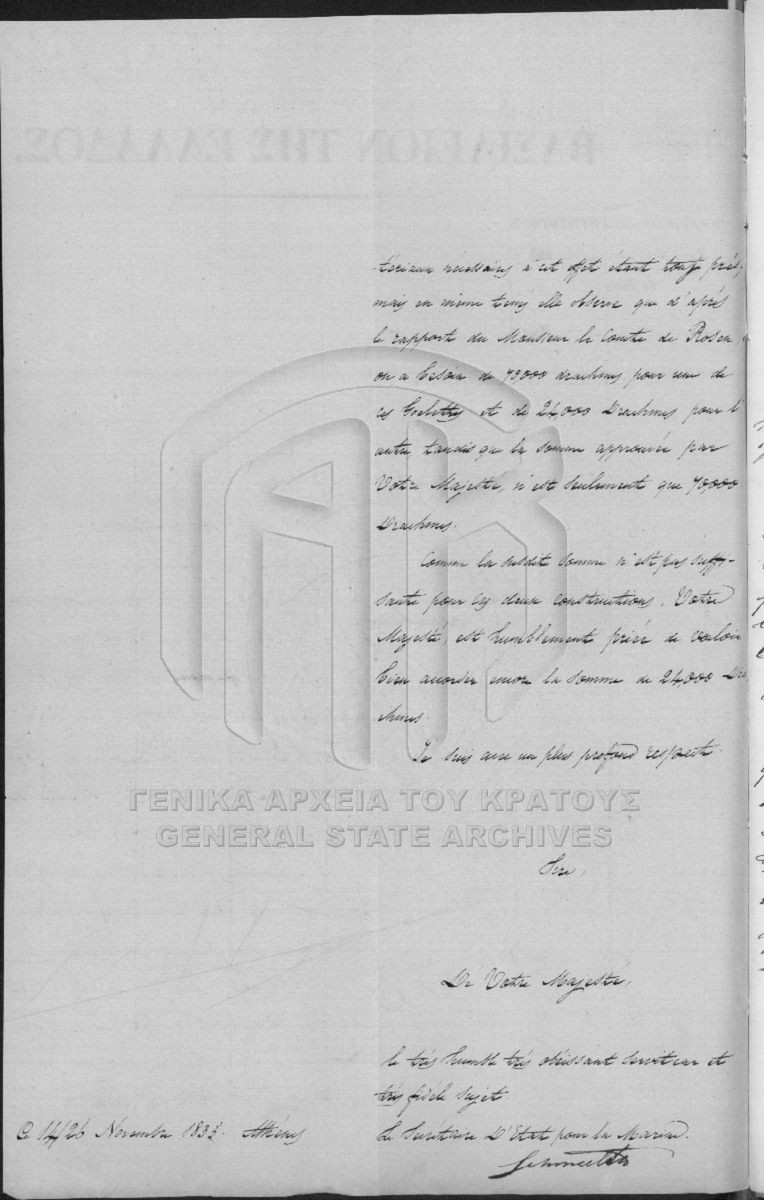 ΒΑΣΙΛΕΙΟΝ ΤΗΣ ΕΛΛΑΔΟΣ.
-tériaux nécessaires à cet effet étant tous près,
mais en même tems elle observe que d'après
le rapport du Monsieur le Comte de Rosen,
on a besoin de 70000 drachmes pour une de
ces Goelettes et de 24,000 Drachmes pour l'
autre, tandis que la somme approuvée par
Votre Majesté, n'est seulement que 70,000
Drachmes.
Comme la susdite somme n'est pas suffi-
sante pour ces deux constructions, Votre
Majesté, est humblement priée de vouloir
bien accorder encore la somme de 24,000 Dra
chmes.
Je suis avec un plus profond respect.
ΓΕΝΙΚΑ ΑΡΧΕΙΑ ΤΟΥ ΚΡΑΤΟΥΣ
GENERAL STATE ARCHIVES
Sire,
De Votre Majesté,
le très humble très obéissant serviteur et
très fidèle sujet.
14/26 Novembre 183 Athénes
Le Secrétaire D'Etat pour la Marine.